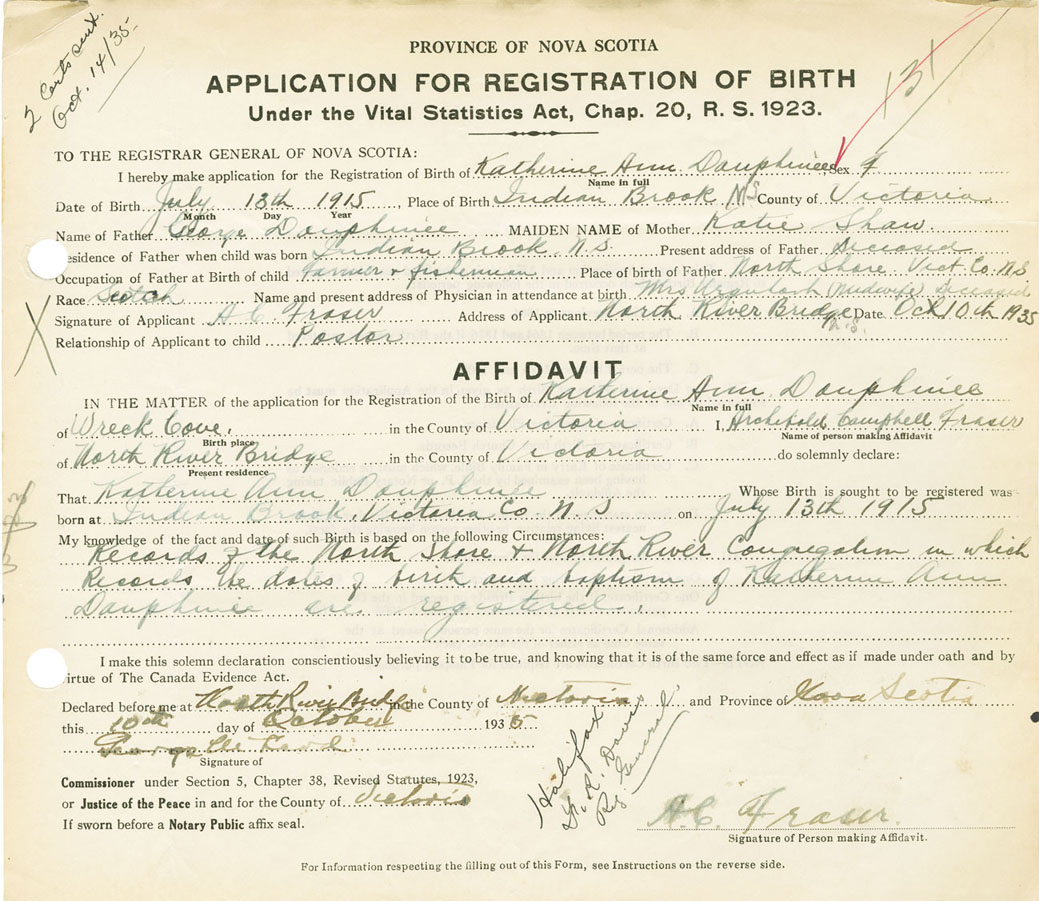 2 Certs sent.
Oct. 14/35-
PROVINCE OF NOVA SCOTIA
APPLICATION FOR REGISTRATION OF BIRTH
Under the Vital Statistics Act, Chap. 20, R. S. 1923.
TO THE REGISTRAR GENERAL OF NOVA SCOTIA:
I hereby make application for the Registration of Birth of Katherine Ann Dauphinee Sex f
Name in full
Date of Birth July 13th 1915, Place of Birth Indian Brook NS County of Victoria
Month Day Year
Name of Father George Dauphinee MAIDEN NAME of Mother Katie Shaw
Residence of Father when child was born Indian Brook, N.S. Present address of Father Deceased
Occupation of Father at Birth of child Farmer & fisherman Place of birth of Father North Shore Vict. Co. N.S
Race Scotch Name and present address of Physician in attendance at birth Mrs (Midwife) Deceased
Signature of Applicant A.C. Fraser Address of Applicant North River Bridge N.S. Date Oct 10th 1935
Relationship of Applicant to child Pastor
AFFIDAVIT
IN THE MATTER of the application for the Registration of the Birth of Katherine Ann Dauphinee
Name in full
of Wreck Cove, in the County of Victoria I, Archibald Campbell Fraser
Birth place Name of person making Affidavit
of North River Bridge in the County of Victoria do solemnly declare:
Present residence
That Katherine Ann Dauphinee Whose Birth is sought to be registered was
born at Indian Brook, Victoria Co. N. S on July 13th 1915
My knowledge of the fact and date of such Birth is based on the following Circumstances:
Records of the North Shore & North River Congregation in which
Records the dates of birth and baptism of Katherine Ann
Dauphinee are registered.
I make this solemn declaration conscientiously believing it to be true, and knowing that it is of the same force and effect as if made under oath and by
virtue of The Canada Evidence Act.
Declared before me at North River Bridge in the County of Victoria and Province of Nova Scotia
this 10th day of October 1935
Signature of
Commissioner under Section 5, Chapter 38, Revised Statutes, 1923,
or Justice of the Peace in and for the County of Victoria
If sworn before a Notary Public affix seal.
Halifax
Davis
Reg. General.
A.C. Fraser.
Signature of Person making Affidavit.
For Information respecting the filling out of this Form, see Instructions on the reverse side.